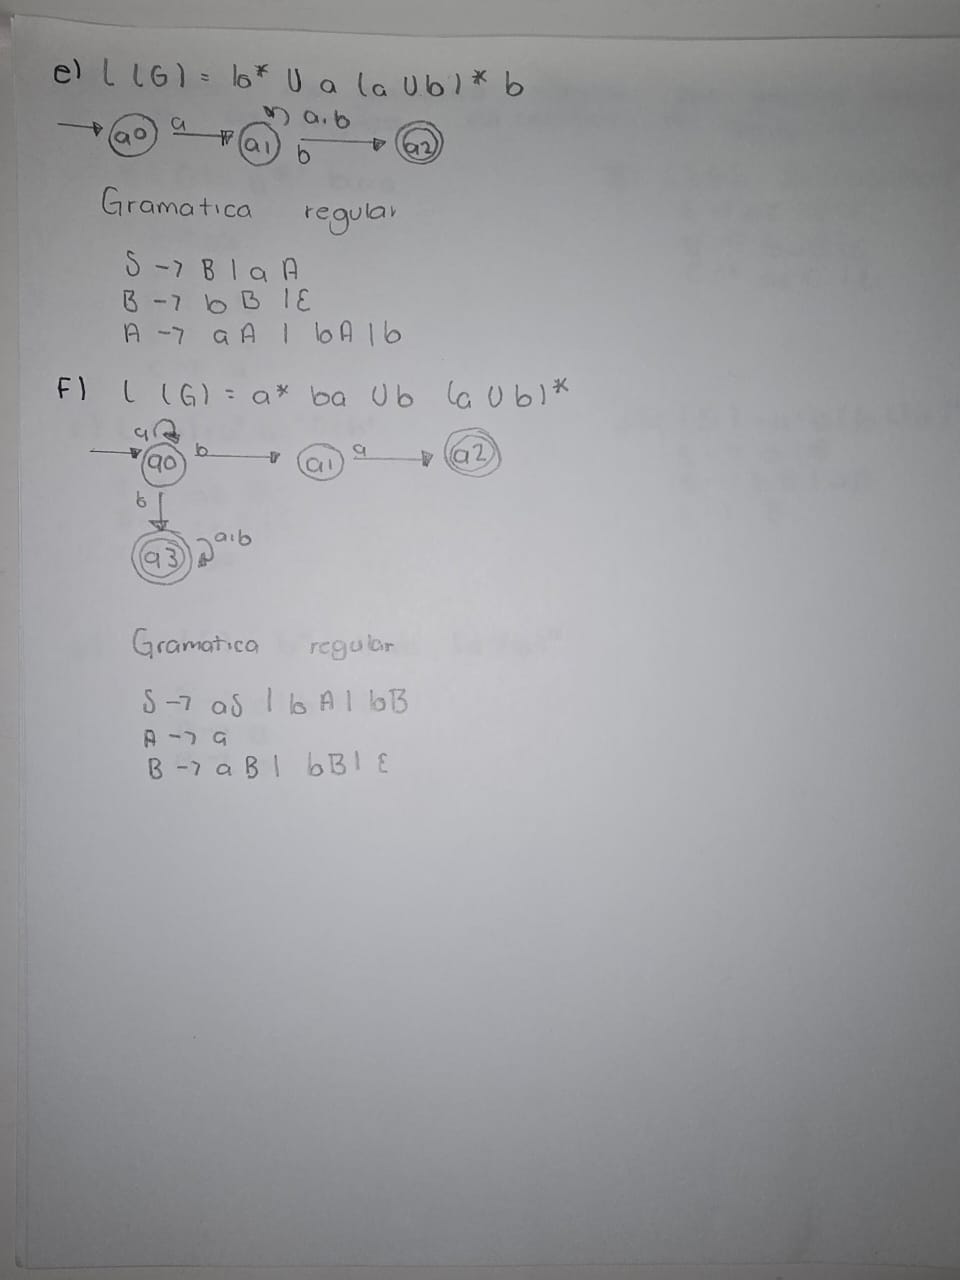 e) L (G) = b* U a (a U b)* b
a a,b
q0 q1 b q2
Gramatica regular
S → B | a A
B → b B | ε
A → a A | bA | b
F) L (G) = a* ba U b (a U b)*
a
q0 b q1 a q2
b
q3 a,b
Gramatica regular
S → aS | bA | bB
A → a
B → aB | bB | ε